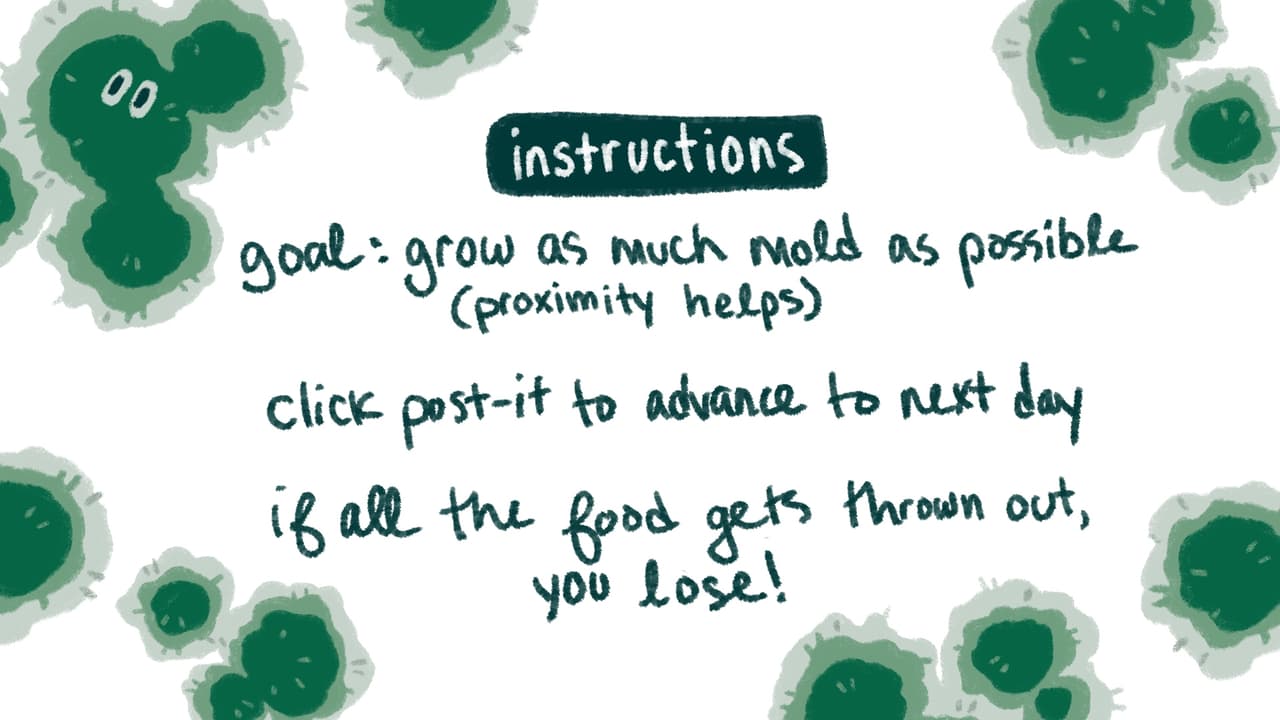 instructions
goal: grow as much mold as possible
(proximity helps)
click post-it to advance to next day
if all the food gets thrown out,
you lose!